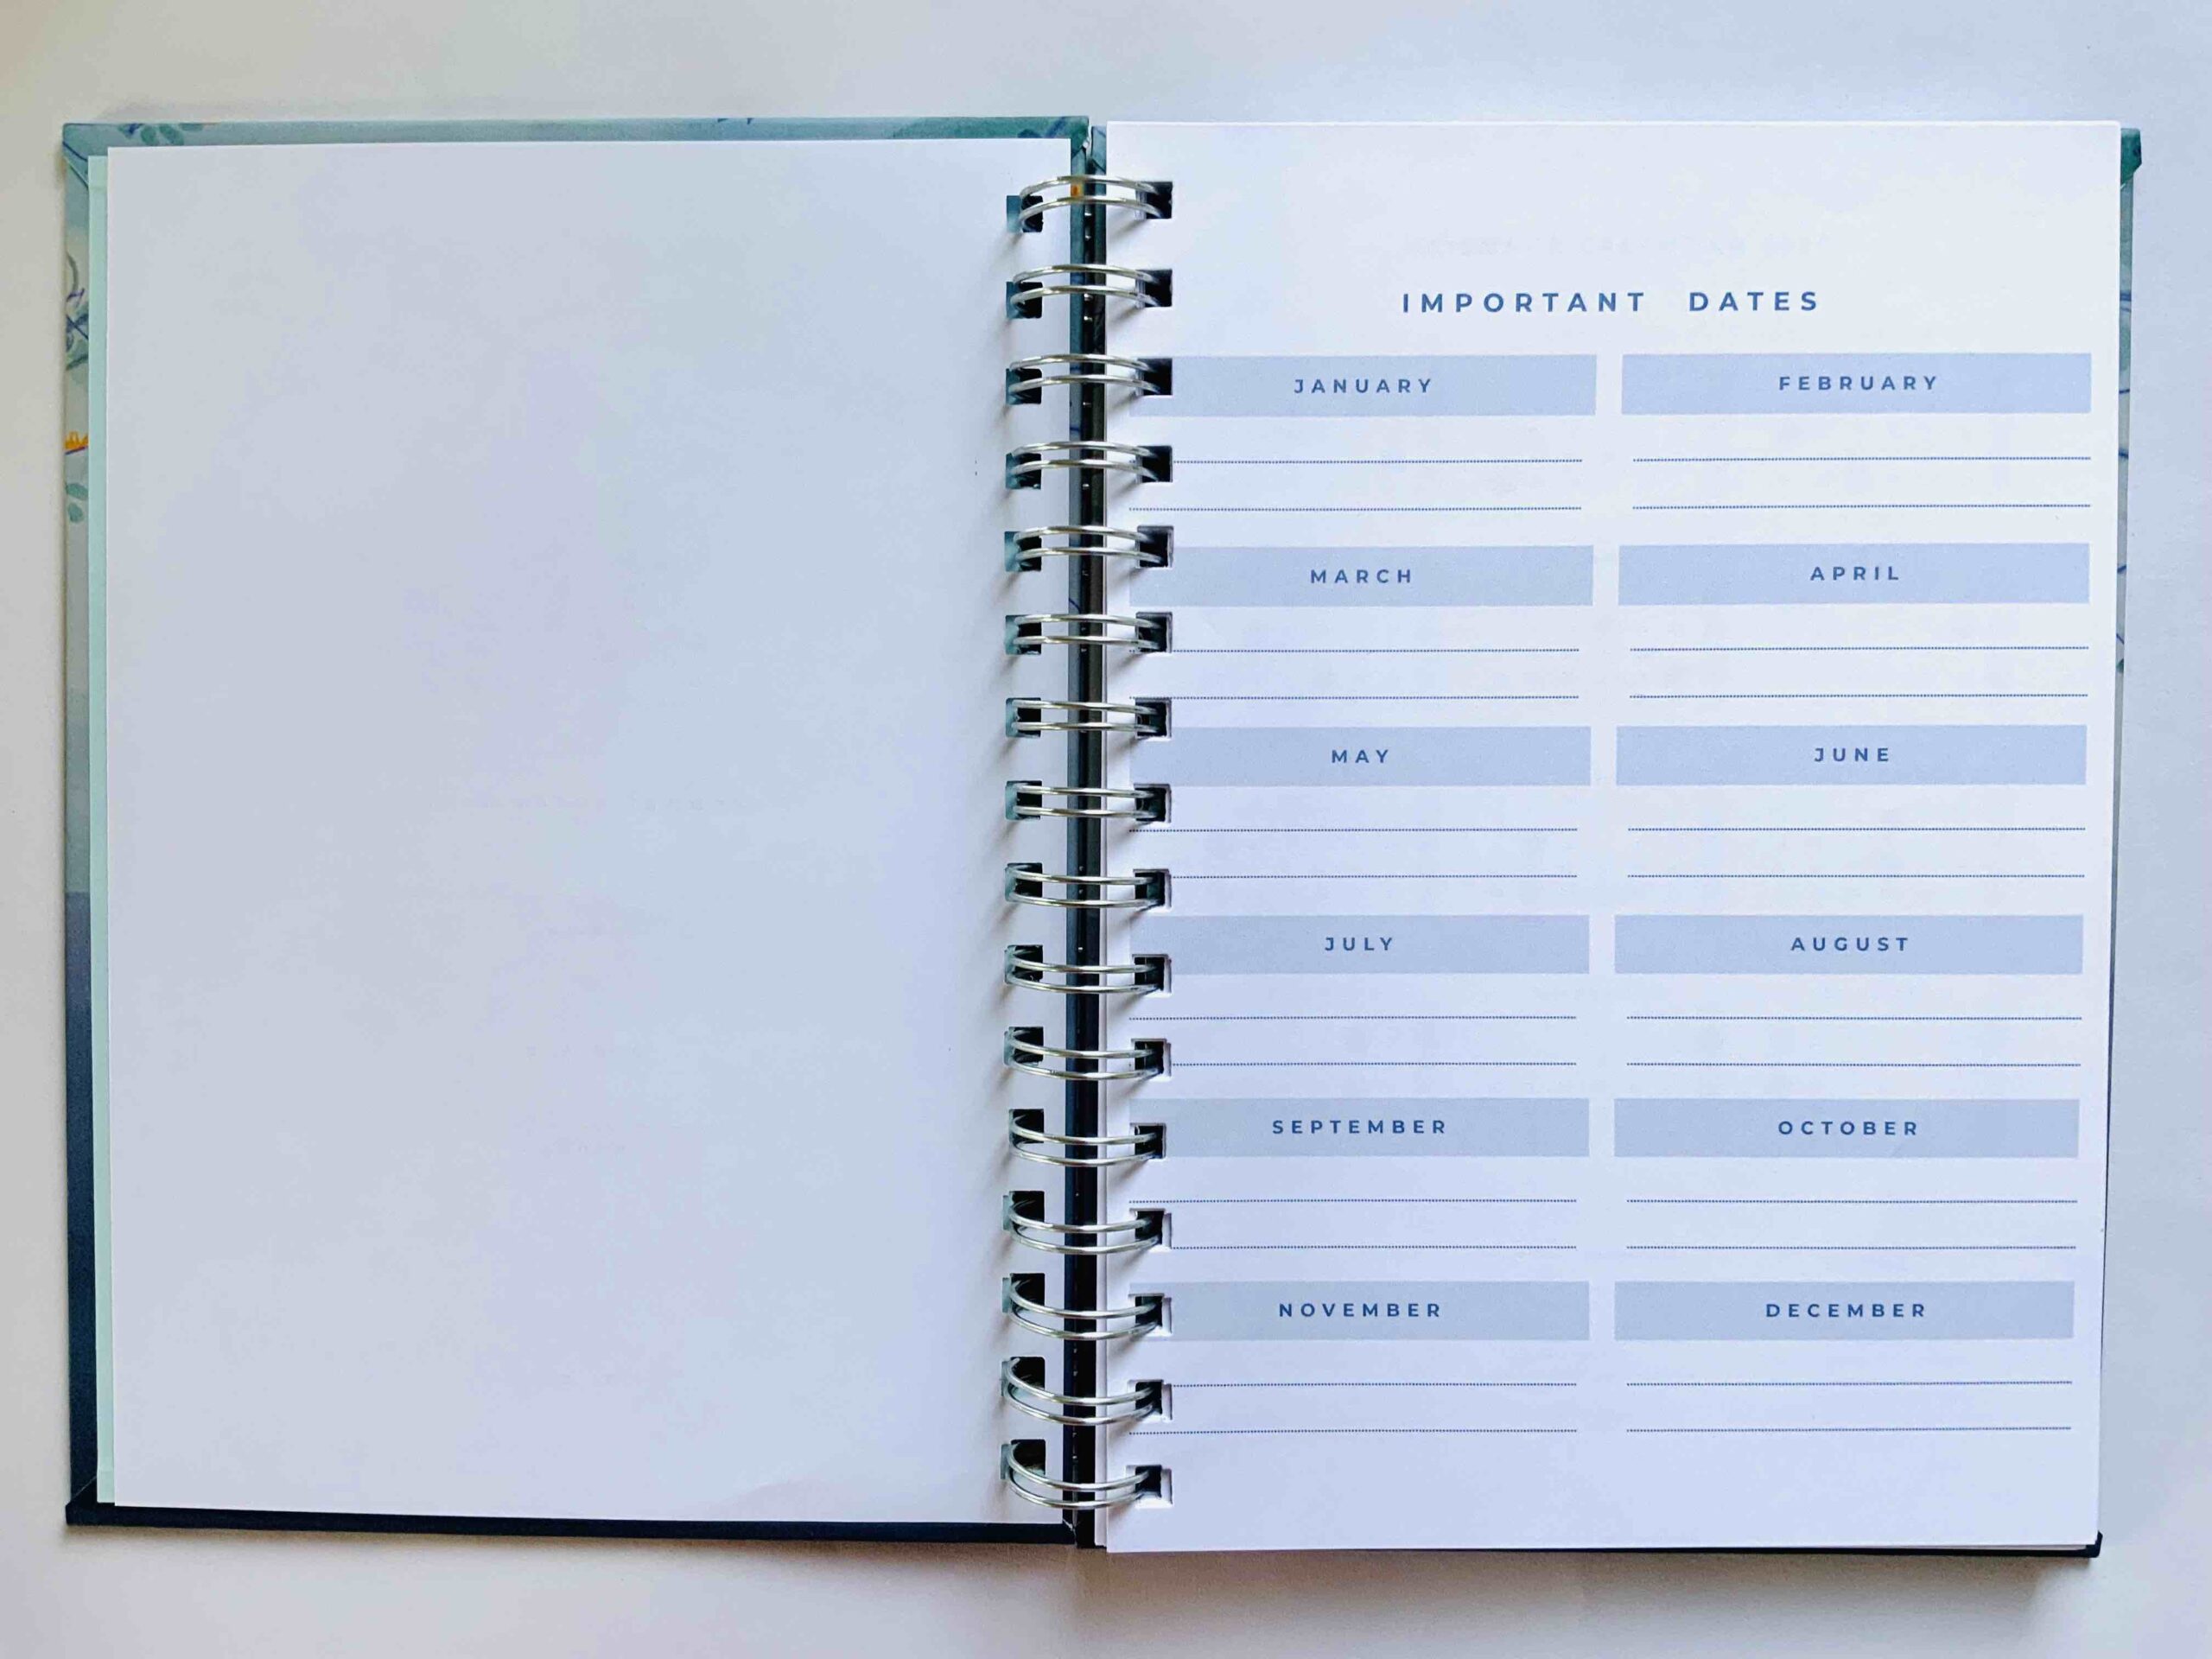 IMPORTANT DATES
JANUARY
FEBRUARY
MARCH
APRIL
MAY
JUNE
JULY
AUGUST
SEPTEMBER
OCTOBER
NOVEMBER
DECEMBER